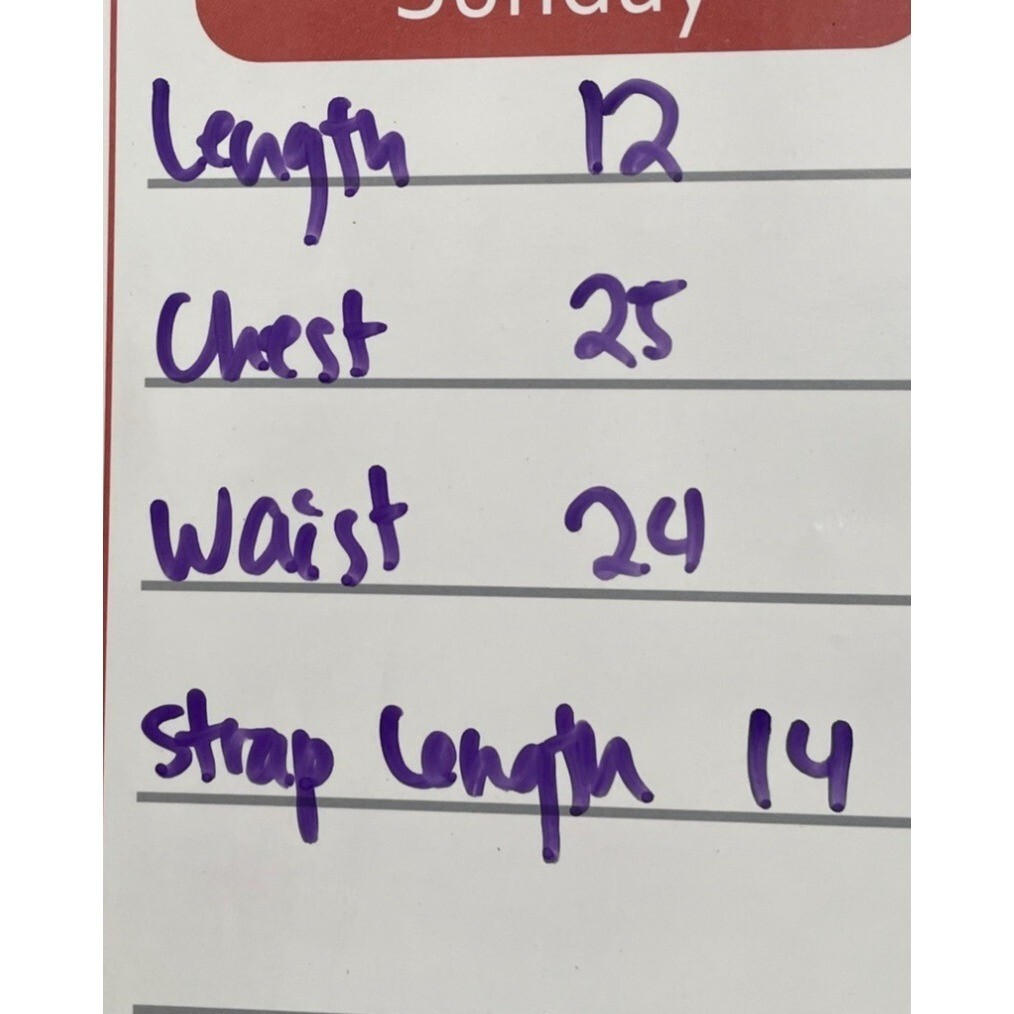 Sunday
Length 12
Chest 25
Waist 24
Strap Length 14